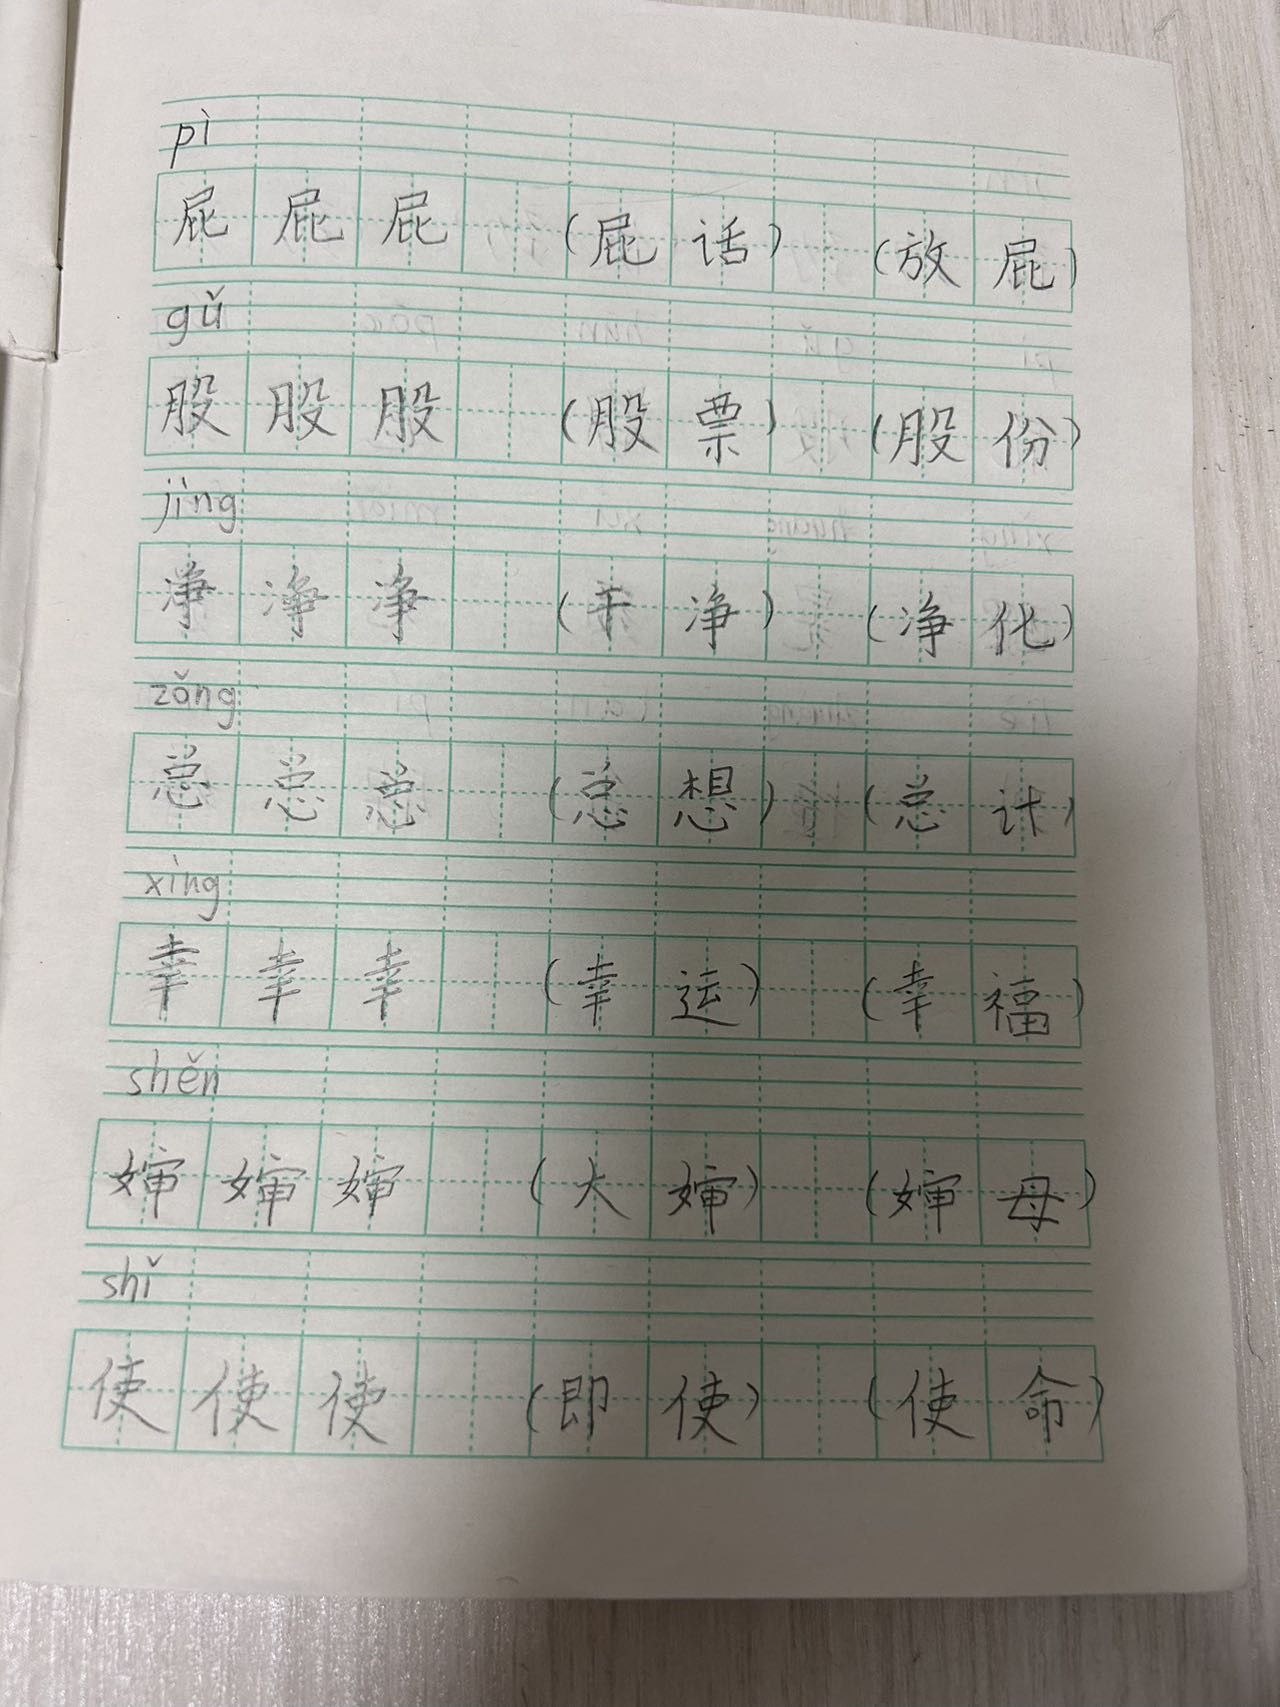 pì
屁 屁 屁 (屁 话) (放 屁)
gǔ
股 股 股 (股 票) (股 份)
jìng
净 净 净 (干 净) (净 化)
zǒng
总 总 总 (总 想) (总 计)
xìng
幸 幸 幸 (幸 运) (幸 福)
shěn
婶 婶 婶 (大 婶) (婶 母)
shǐ
使 使 使 (即 使) (使 命)